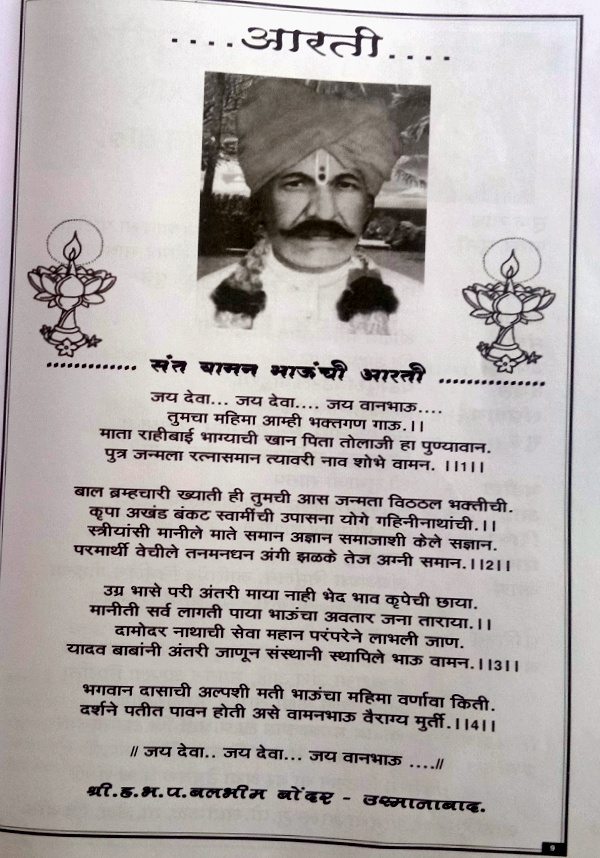 ....आरती....
............ संत वामन भाऊंची आरती ............
जय देवा... जय देवा.... जय वानभाऊ....
तुमचा महिमा आम्ही भक्तगण गाऊ.।।
माता राहीबाई भाग्याची खान पिता तोलाजी हा पुण्यावान.
पुत्र जन्मला रत्नासमान त्यावरी नाव शोभे वामन. ।।1।।
बाल ब्रम्हचारी ख्याती ही तुमची आस जन्मता विठठल भक्तीची.
कृपा अखंड बंकट स्वामींची उपासना योगे गहिनीनाथांची.।।
स्त्रीयांसी मानीले माते समान अज्ञान समाजाशी केले सज्ञान.
परमार्थी वेचीले तनमनधन अंगी झळके तेज अग्नी समान.।।2।।
उग्र भासे परी अंतरी माया नाही भेद भाव कृपेची छाया.
मानीती सर्व लागती पाया भाऊंचा अवतार जना ताराया.।।
दामोदर नाथाची सेवा महान परंपरेने लाभली जाण.
यादव बाबांनी अंतरी जाणून संस्थानी स्थापिले भाऊ वामन.।।3।।
भगवान दासाची अल्पशी मती भाऊंचा महिमा वर्णावा किती.
दर्शने पतीत पावन होती असे वामनभाऊ वैराग्य मुर्ती.।।4।।
// जय देवा.. जय देवा... जय वानभाऊ ....//
श्री.ह.भ.प.बलभीम बोंदर - उस्मानाबाद.
9